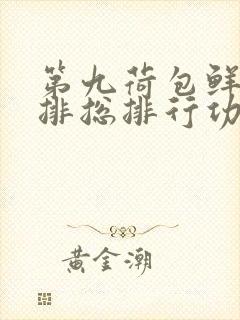 第九荷包鲜
排总排行功
黄金潮